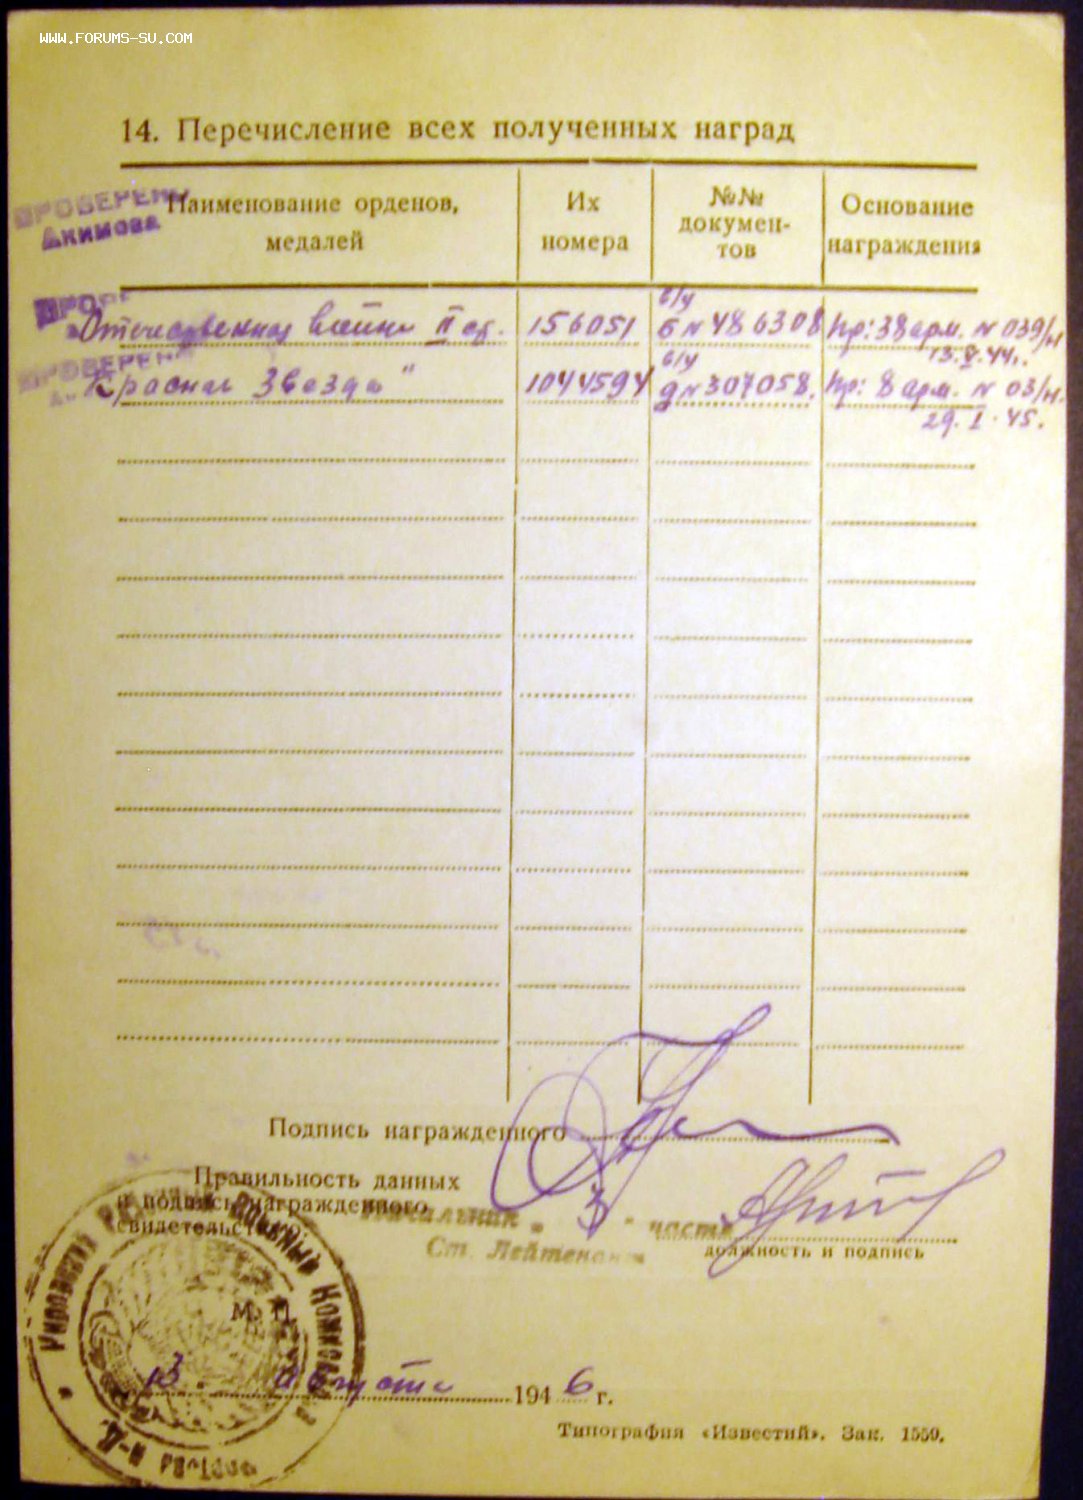 WWW.FORUMS-SU.COM
14. Перечисление всех полученных наград
ПРОВЕРЕНО
Акимова
Наименование орденов, медалей
Их номера
№№ докумен-тов
Основание награждения
Отечественная войны II ст. 156051 б/у б N 486308 Пр: 38 арм. N 039/н
13.V.44г.
ПРОВЕРЕНО
"Красная Звезда" 1044594 б/у д N 307058. Пр: 8 арм. N 03/н.
29.I.45.
Подпись награжденного
Правильность данных
и подпись награжденного
свидетельствую:
Начальник „ 3 " части
Ст. Лейтенант
должность и подпись
М. П.
Кировский Военный Комиссариат
13. августа 1946 г.
Типография «Известий». Зак. 1559.